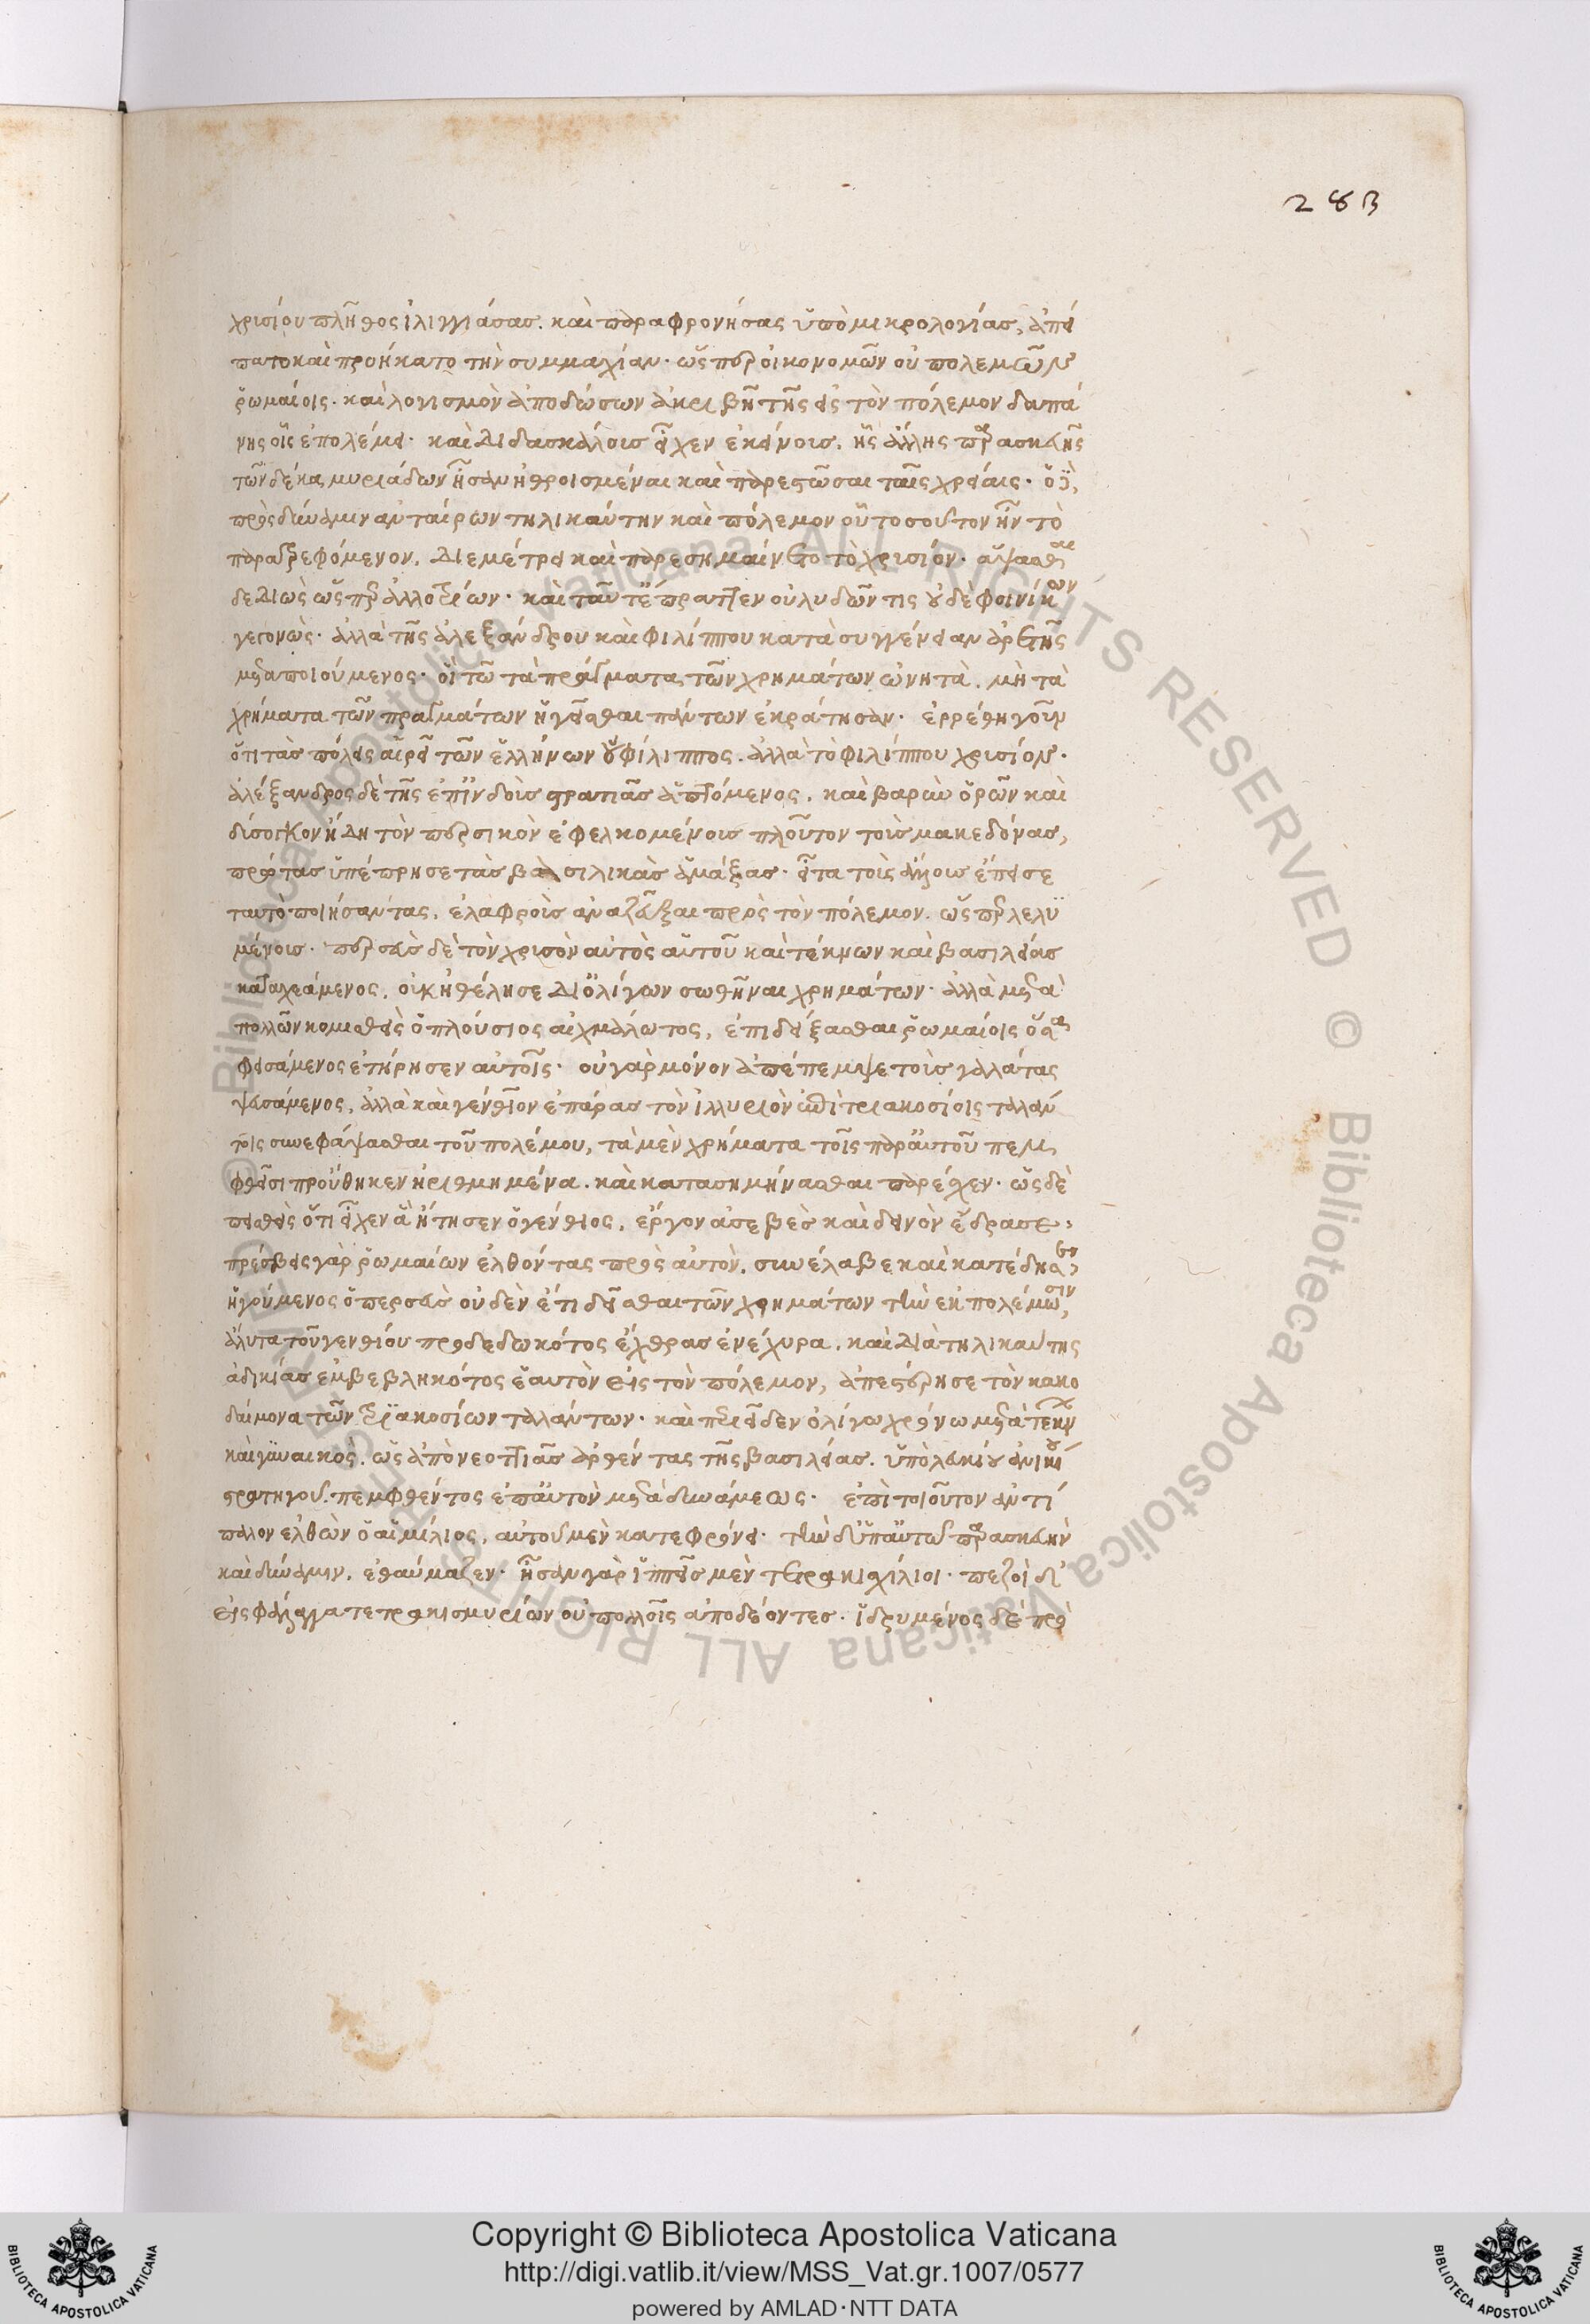 283
χρυσίου πλῆθος ἰλιγγιάσας. καὶ παραφρονήσας ὑπὸ μικρολογίας, ἀπεί
πατο καὶ προήκατο τὴν συμμαχίαν. ὥσπερ οἰκονομῶν οὐ πολεμῶν
ῥωμαίοις. καὶ λογισμὸν ἀποδώσων ἀκριβῆ τῆς εἰς τὸν πόλεμον δαπά
νης οἷς ἐπολέμει. καὶ διδασκάλους εἶχεν ἐκείνους. ἧς ἄλλης παρασκευῆς
τῶν δέκα μυριάδων ἦσαν ἠθροισμέναι καὶ παρεστῶσαι ταῖς χρείαις. ὁ δὲ
πρὸς δύναμιν ἀνταίρων τηλικαύτην καὶ πόλεμον οὗ τοσοῦτον ἦν τὸ
παρατρεφόμενον, διεμέτρει καὶ παρεσημαίνετο τὸ χρυσίον. ἅψασθαι
δεδιὼς ὥσπερ ἀλλοτρίων. καὶ ταῦτ' ἔπραττεν οὐ λυδῶν τις οὐδὲ φοινίκων
γεγονὼς. ἀλλὰ τῆς ἀλεξάνδρου καὶ φιλίππου κατὰ συγγένειαν ἀρετῆς
μεταποιούμενος. οἳ τῶ τὰ πράγματα τῶν χρημάτων ὠνητὰ. μὴ τὰ
χρήματα τῶν πραγμάτων ἡγεῖσθαι πάντων ἐκράτησαν. ἐρρέθη γοῦν
ὅτι τὰς πόλεις αἱρεῖ τῶν ἑλλήνων οὐ φίλιππος. ἀλλὰ τὸ φιλίππου χρυσίον.
ἀλέξανδρος δὲ τῆς ἐπ' ἰνδοὺς στρατιᾶς ἁπτόμενος. καὶ βαρὺν ὁρῶν καὶ
δύσογκον ἤδη τὸν περσικὸν ἐφελκομένους πλοῦτον τοὺς μακεδόνας,
πρώτας ὑπέπρησε τὰς βασιλικὰς ἁμάξας. εἶτα τοὺς ἄλλους ἔπεισε
ταυτὸ ποιήσαντας, ἐλαφροὺς ἀναζεῦξαι πρὸς τὸν πόλεμον. ὥσπερ λελυ
μένους. περσεὺς δὲ τὸν χρυσὸν αὐτὸς αὑτοῦ καὶ τέκνων καὶ βασιλείας
καταχεάμενος, οὐκ ἠθέλησε δι' ὀλίγων σωθῆναι χρημάτων. ἀλλὰ μετὰ
πολλῶν κομισθεὶς ὁ πλούσιος αἰχμάλωτος, ἐπιδείξασθαι ῥωμαίοις ὅσα
φεισάμενος ἐτήρησεν αὐτοῖς. οὐ γὰρ μόνον ἀπέπεμψε τοὺς γαλάτας
ψευσάμενος, ἀλλὰ καὶ γένθιον ἐπάρας τὸν ἰλλυριὸν ἐπὶ τριακοσίοις ταλάν
τοις συνεφάψασθαι τοῦ πολέμου, τὰ μὲν χρήματα τοῖς παρ' αὐτοῦ πεμ
φθεῖσι προύθηκεν ἠριθμημένα. καὶ κατασημήνασθαι παρέσχεν. ὡς δὲ
πεισθεὶς ὅτι ἔχει ἃ ᾔτησεν ὁ γένθιος, ἔργον ἀσεβὲς καὶ δεινὸν ἔδρασε.
πρέσβεις γὰρ ῥωμαίων ἐλθόντας πρὸς αὐτὸν, συνέλαβε καὶ κατέδησεν
ἡγούμενος ὁ περσεὺς οὐδὲν ἔτι δεῖσθαι τῶν χρημάτων τὴν ἐκπολέμωσιν,
ἄλυτα τοῦ γενθίου προδεδωκότος ἔχθρας ἐνέχυρα. καὶ διὰ τηλικαύτης
ἀδικίας ἐμβεβληκότος ἑαυτὸν εἰς τὸν πόλεμον, ἀπεστέρησε τὸν κακο
δαίμονα τῶν τριακοσίων ταλάντων. καὶ περιεῖδεν ὀλίγω χρόνω μετὰ τέκνων
καὶ γυναικὸς. ὡς ἀπὸ νεοττιᾶς ἀρθέντας τῆς βασιλείας. ὑπὸ λευκίου ἀνικίου
στρατηγοῦ. πεμφθέντος ἐπ' αὐτὸν μετὰ δυνάμεως. ἐπὶ τοιοῦτον ἀντί
παλον ἐλθὼν ὁ αἰμίλιος, αὐτοῦ μὲν κατεφρόνει. τὴν δ' ὑπ' αὐτῶ παρασκευὴν
καὶ δύναμιν, ἐθαύμαζεν. ἦσαν γὰρ ἱππεῖς μὲν τετρακισχίλιοι. πεζοὶ δ'
εἰς φάλαγγα τετρακισμυρίων οὐ πολλοῖς ἀποδέοντες. ἱδρυμένος δὲ πρὸ
Copyright © Biblioteca Apostolica Vaticana
http://digi.vatlib.it/view/MSS_Vat.gr.1007/0577
powered by AMLAD·NTT DATA
BIBLIOTECA APOSTOLICA VATICANA
BIBLIOTECA APOSTOLICA VATICANA
© Biblioteca Apostolica Vaticana ALL RIGHTS RESERVED © Biblioteca Apostolica Vaticana ALL RIGHTS RESERVED